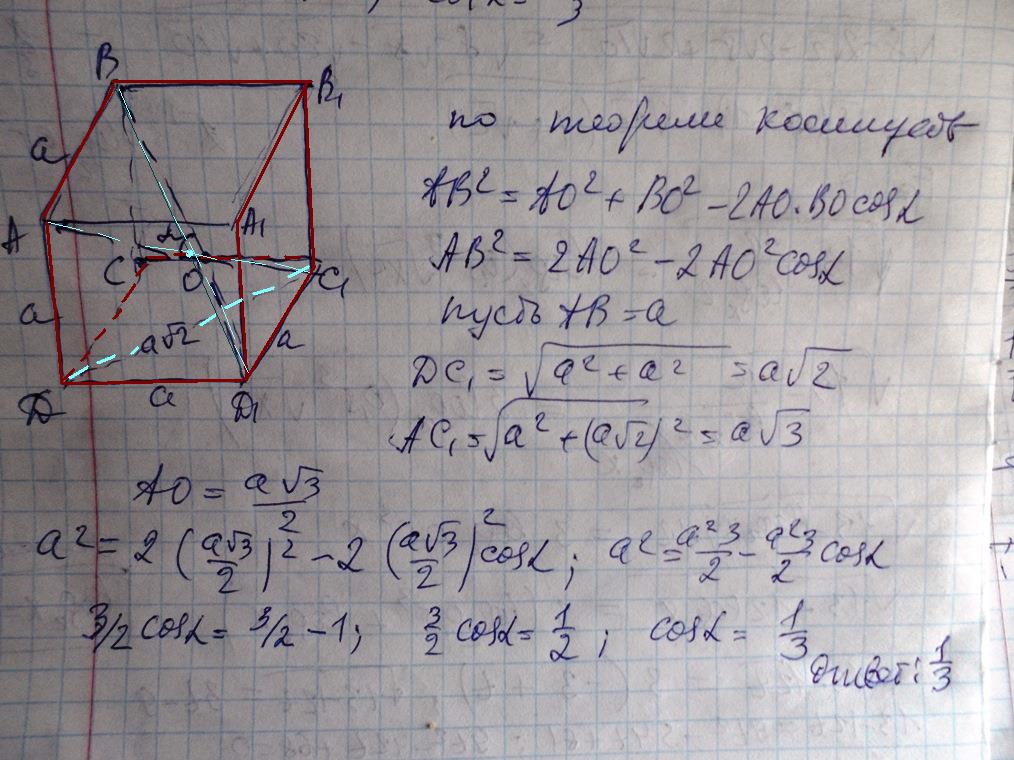 B
B₁
a
A
A₁
α
C
O
C₁
a
a√2
a
D
a
D₁
по теореме косинусов
AB² = AO² + BO² - 2AO·BO cosα
AB² = 2AO² - 2AO² cosα
пусть AB = a
DC₁ = √(a² + a²) = a√2
AC₁ = √(a² + (a√2)²) = a√3
AO = a√3/2
a² = 2 (a√3/2)² - 2 (a√3/2)² cosα ; a² = a²3/2 - a²3/2 cosα
3/2 cosα = 3/2 - 1 ; 3/2 cosα = 1/2 ; cosα = 1/3
Ответ: 1/3